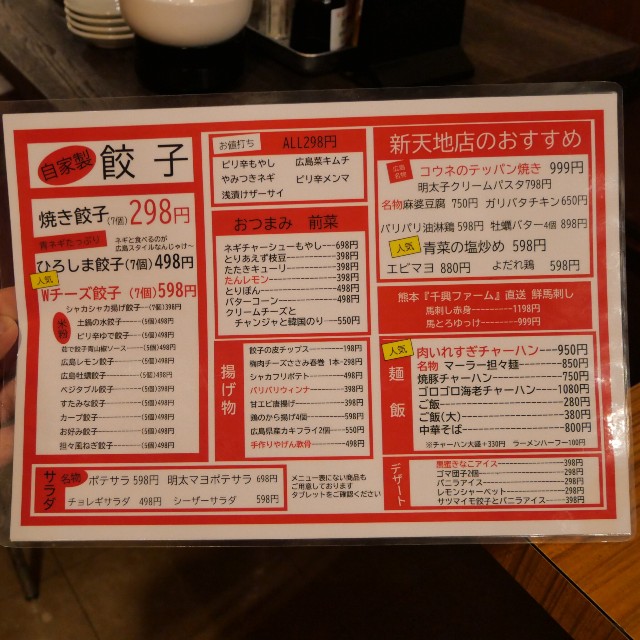 自家製 餃子
焼き餃子(7個)298円
青ネギたっぷり ネギと食べるのが
広島スタイルなんじゃけ〜
ひろしま餃子(7個)498円
人気
Wチーズ餃子(7個)598円
米粉
シャカシャカ揚げ餃子----(7個)398円
土鍋の水餃子----(5個)498円
ピリ辛ゆで餃子----(5個)498円
茹で餃子青山椒ソース----(5個)498円
広島レモン餃子----(5個)498円
広島牡蠣餃子----(5個)498円
ベジタブル餃子----(5個)398円
すたみな餃子----(5個)498円
カープ餃子----(5個)498円
お好み餃子----(5個)498円
担々風ねぎ餃子----(5個)498円
サラダ
名物 ポテサラ 598円 明太マヨポテサラ 698円
チョレギサラダ 498円 シーザーサラダ 598円
お値打ち ALL298円
ピリ辛もやし 広島菜キムチ
やみつきネギ ピリ辛メンマ
浅漬けザーサイ
おつまみ 前菜
ネギチャーシューもやし---698円
とりあえず枝豆----398円
たたきキューリ----398円
たんレモン----398円
とりぽん----498円
バターコーン----498円
クリームチーズと
チャンジャと韓国のり----550円
揚げ物
餃子の皮チップス----198円
梅肉チーズささみ春巻 1本-298円
シャカフリポテト----498円
パリパリウィンナ----398円
甘エビ唐揚げ----398円
鶏のから揚げ4個----598円
広島県産カキフライ2個----550円
手作りやげん軟骨----498円
メニュー表にない商品も
ご用意しております
タブレットをご確認ください
新天地店のおすすめ
広島名物 コウネのテッパン焼き 999円
明太子クリームパスタ798円
名物麻婆豆腐 750円 ガリバタチキン650円
パリパリ油淋鶏 598円 牡蠣バター4個 898円
人気 青菜の塩炒め 598円
エビマヨ 880円 よだれ鶏 598円
熊本『千興ファーム』直送 鮮馬刺し
馬刺し赤身----1198円
馬とろゆっけ----999円
麺 飯
人気 肉いれすぎチャーハン---950円
名物 マーラー担々麺----850円
焼豚チャーハン----750円
ゴロゴロ海老チャーハン----1080円
ご飯----280円
ご飯(大)----380円
中華そば----800円
※チャーハン大盛+330円 ラーメンハーフ-100円
デザート
黒蜜きなこアイス----398円
ゴマ団子2個----298円
バニラアイス----298円
レモンシャーベット----298円
サツマイモ餃子とバニラアイス----398円